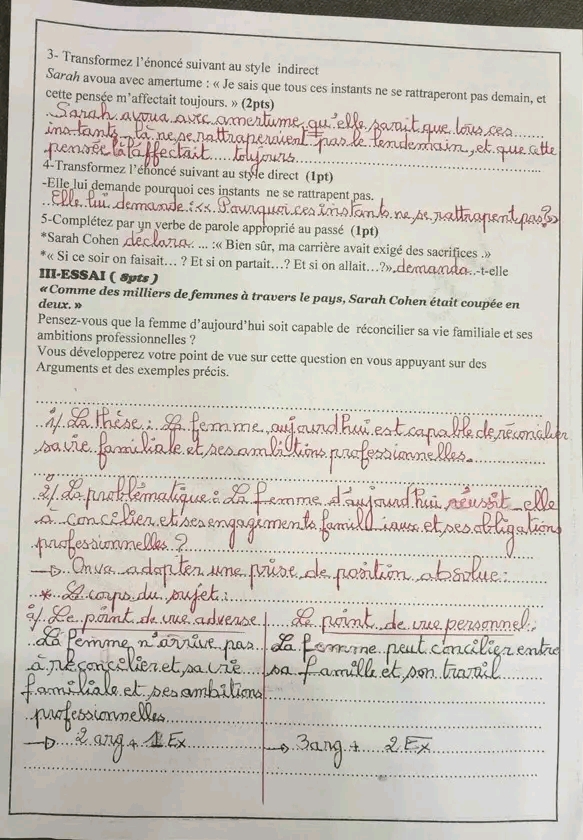 3- Transformez l'énoncé suivant au style indirect
Sarah avoua avec amertume : « Je sais que tous ces instants ne se rattraperont pas demain, et
cette pensée m'affectait toujours. » (2pts)
Sarah avoua avec amertume qu'elle savait que tous ces
instants-là ne se rattraperaient pas le lendemain, et que cette
pensée là l'affectait toujours
4-Transformez l'énoncé suivant au style direct (1pt)
-Elle lui demande pourquoi ces instants ne se rattrapent pas.
Elle lui demande : « Pourquoi ces instants ne se rattrapent pas ? »
5-Complétez par un verbe de parole approprié au passé (1pt)
*Sarah Cohen déclara ... :« Bien sûr, ma carrière avait exigé des sacrifices .»
*« Si ce soir on faisait… ? Et si on partait…? Et si on allait…?» demanda..-t-elle
III-ESSAI ( 8pts )
«Comme des milliers de femmes à travers le pays, Sarah Cohen était coupée en
deux. »
Pensez-vous que la femme d'aujourd'hui soit capable de réconcilier sa vie familiale et ses
ambitions professionnelles ?
Vous développerez votre point de vue sur cette question en vous appuyant sur des
Arguments et des exemples précis.
1/ La thèse : La femme aujourd'hui est capable de réconcilier
sa vie familiale et ses ambitions professionnelles.
2/ La problématique : La femme d'aujourd'hui réussit-elle
à concilier et ses engagements familiaux et ses obligations
professionnelles ?
→ On va adopter une prise de position absolue :
* Le corps du sujet :
a/ Le point de vue adverse
La femme n'arrive pas
à réconcilier et sa vie
familiale et ses ambitions
professionnelles
→ 2 arg + 1 Ex
Le point de vue personnel :
La femme peut concilier entre
sa famille et son travail
→ 3arg + 2 Ex